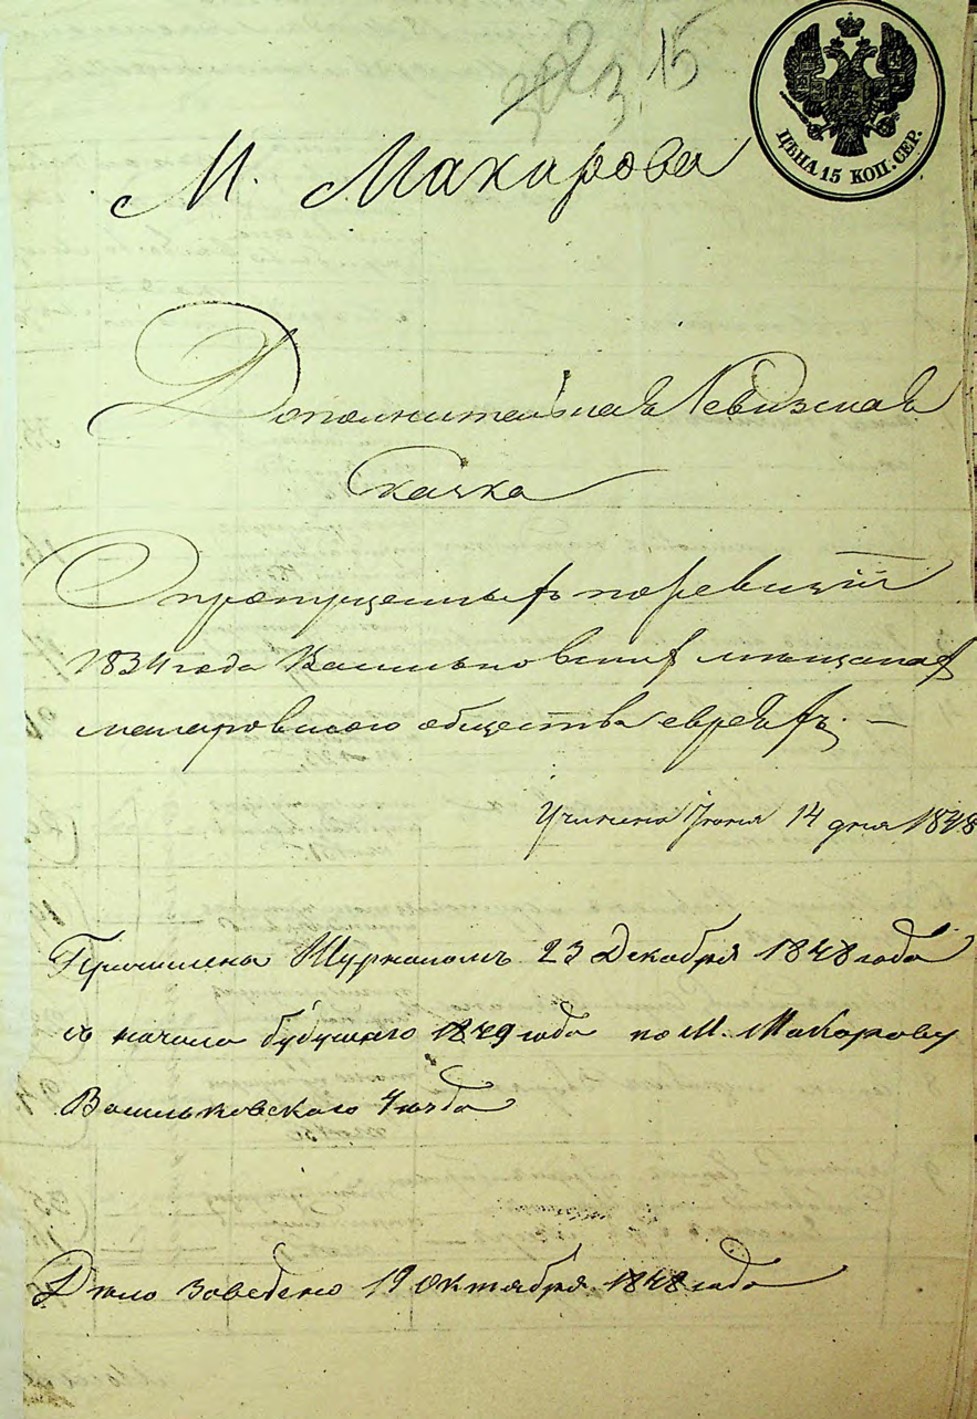 15
ЦѢНА 15 КОП. СЕР.
М. Макарова
Дополнительная Ревизская
Сказка
О пропущенныхъ по ревизіи
1834 года Васильковских мещанах
макаровского общества евреяхъ. —
Учинена Июня 14 дня 1848
Причислена Журналомъ 23 Декабря 1848 года
съ начала будущаго 1849 года по М. Макарову
Васильковского уѣзда
Дѣло заведено 19 Октября 1848 года